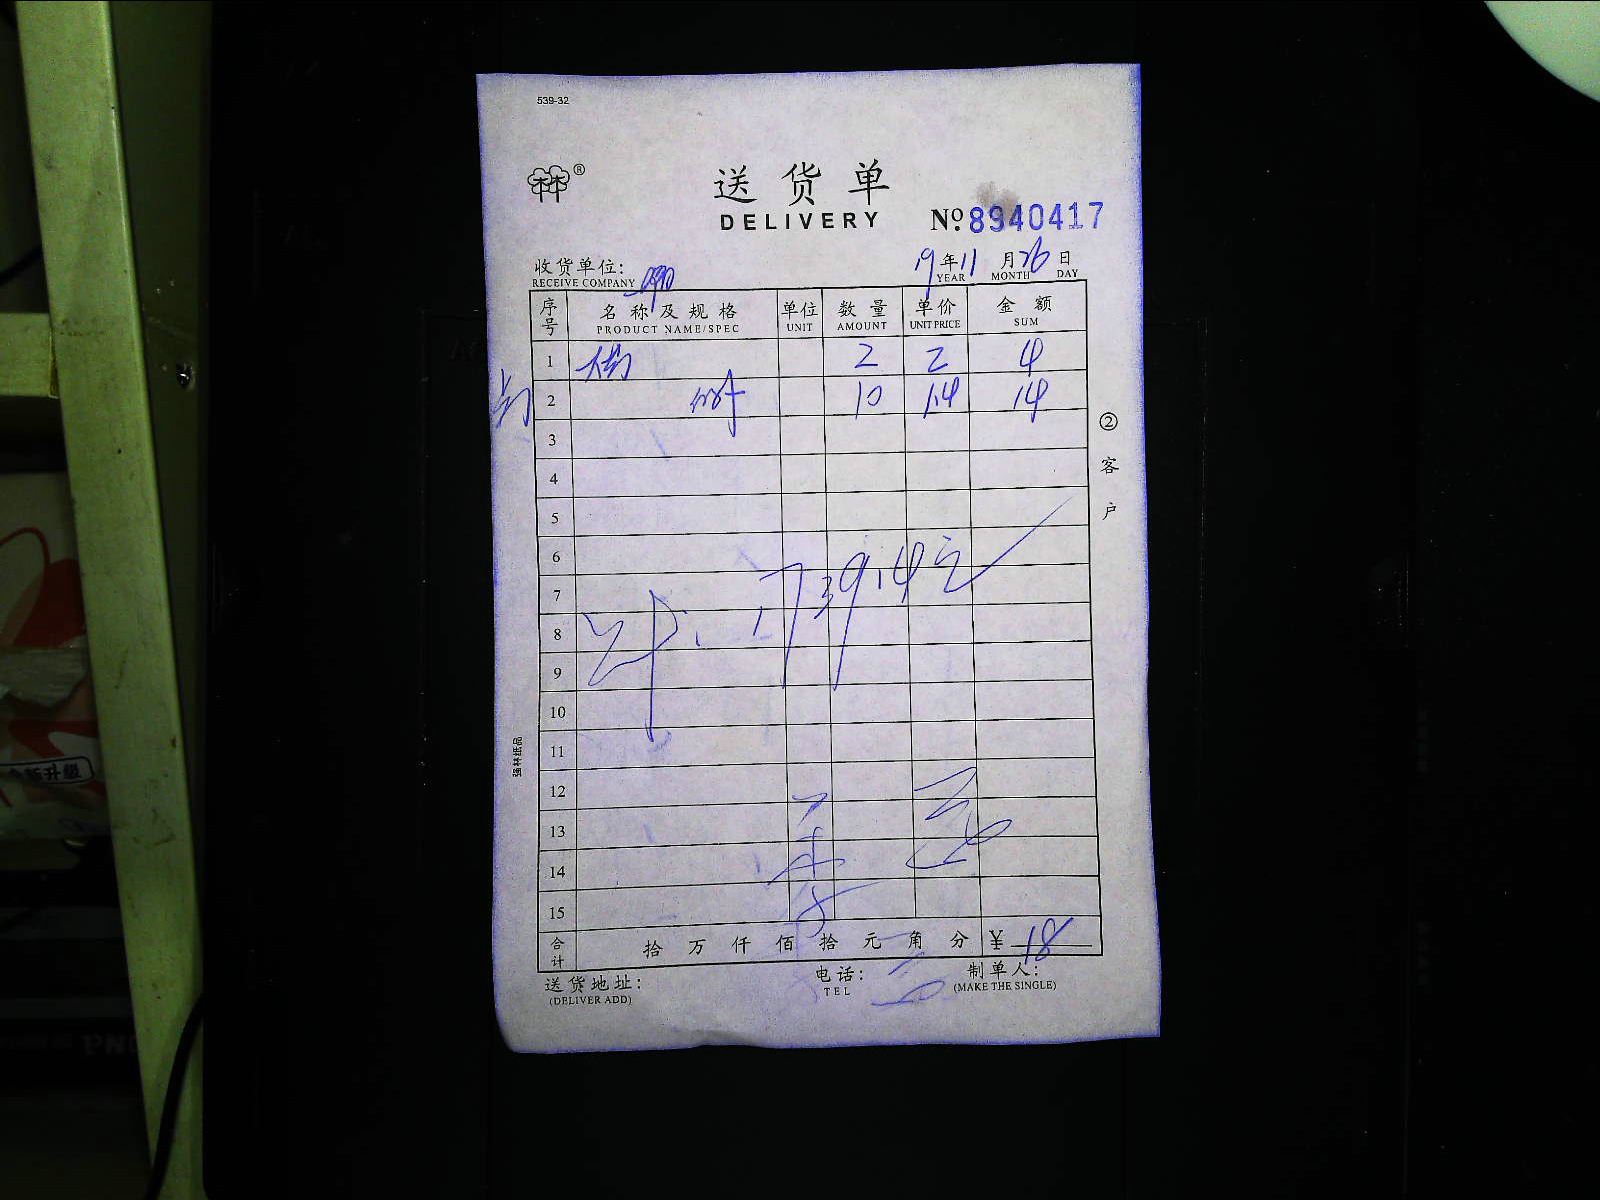 539-32
林®
送货单
DELIVERY
№ 8940417
收货单位:
RECEIVE COMPANY
19年11月26日
YEAR MONTH DAY
序号 名称及规格 单位 数量 单价 金额
PRODUCT NAME/SPEC UNIT AMOUNT UNIT PRICE SUM
1 2 2 4
2 10 1.4 14
3
4
5
6
7
8
9
10
11
12
13
14
15
合计 拾万仟佰拾元角分 ¥ 18
送货地址: 电话: 制单人:
(DELIVER ADD) TEL (MAKE THE SINGLE)
②客户
强林纸品
新升级